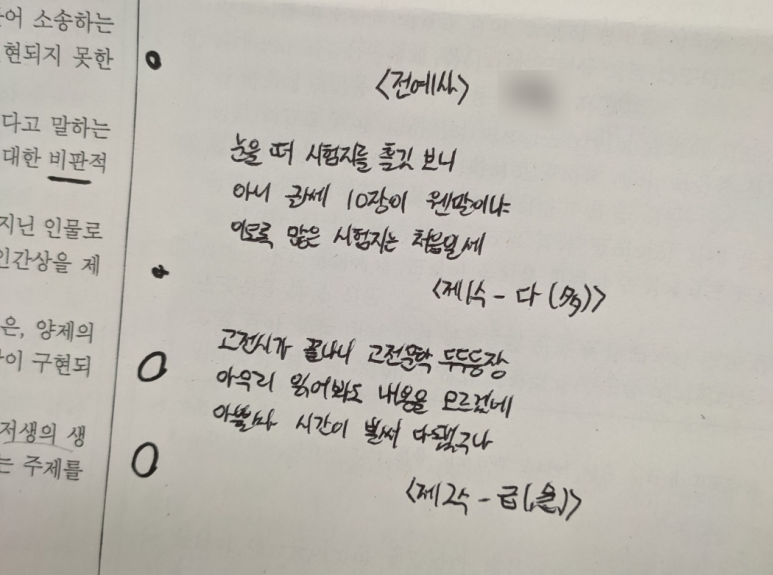 어 소송하는
현되지 못한
다고 말하는
대한 비판적
지닌 인물로
인간상을 제
은, 양제의
이 구현되
저생의 생
는 주제를
<전예사>
눈을 떠 시험지를 흘깃 보니
아니 글쎄 10장이 웬말이냐
이토록 많은 시험지는 처음일세
<제1수 - 다 (多)>
고전시가 끝나니 고전문학 두두등장
아무리 읽어봐도 내용을 모르겠네
아뿔싸 시간이 벌써 다됐구나
<제2수 - 급(急)>